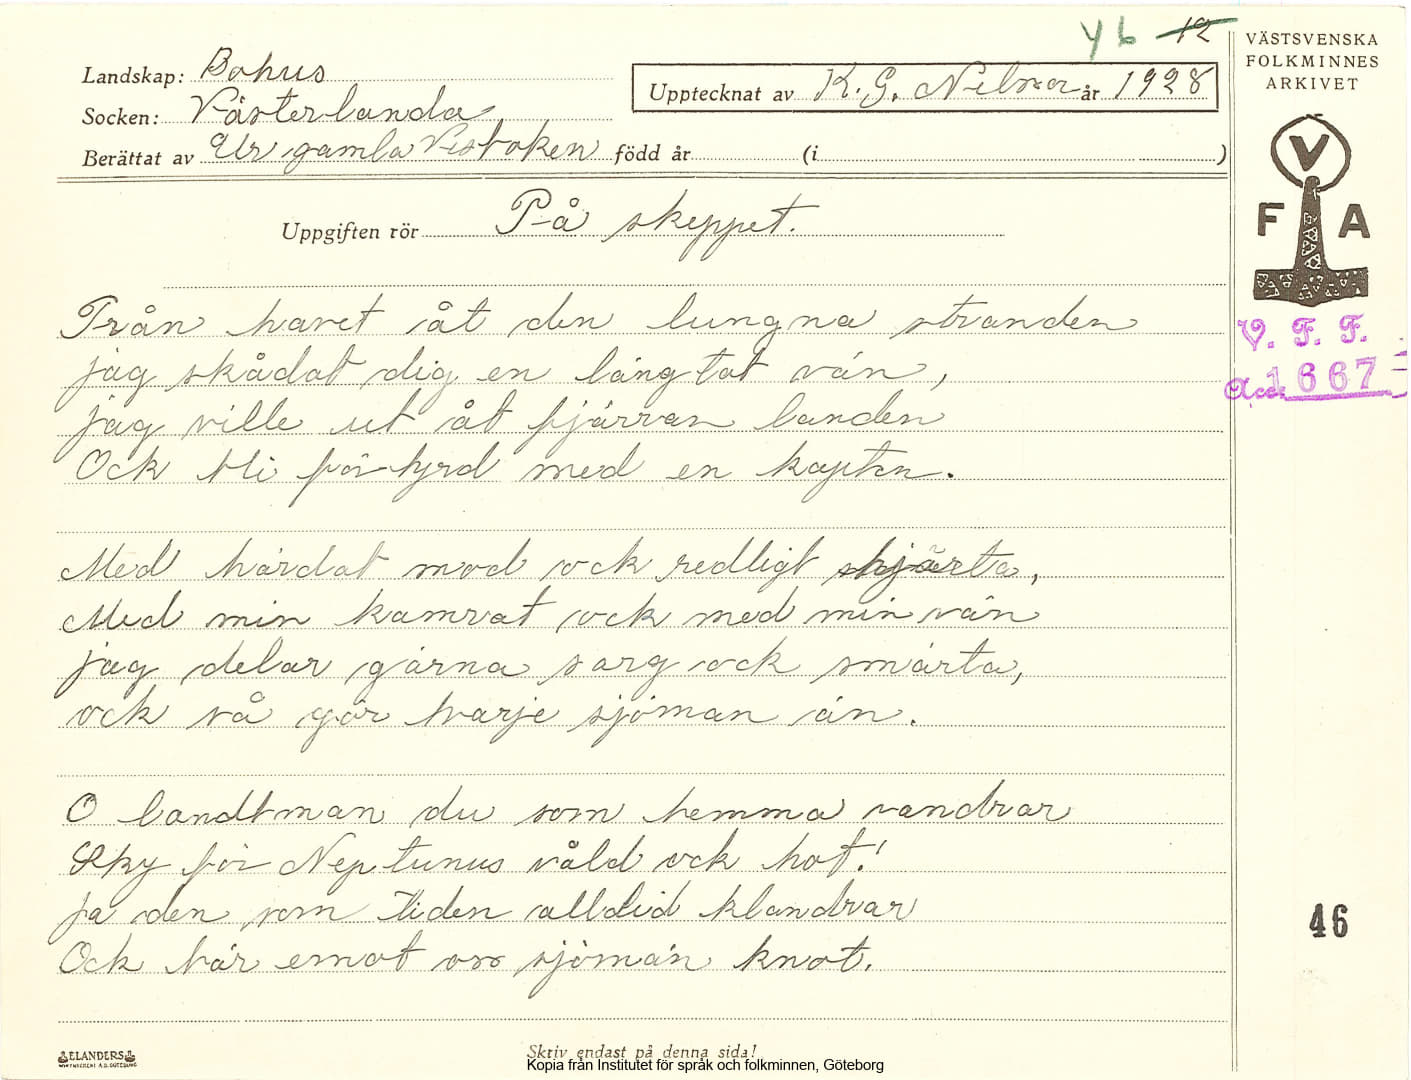 46 12
VÄSTSVENSKA
FOLKMINNES
ARKIVET
Landskap: Bohus
Upptecknat av K. G. Nilson år 1928
Socken: Västerlanda
Berättat av Ur gamla Visboken född år (i )
V
F A
Uppgiften rör På skeppet.
Från havet åt den lungna stranden
jag skådat dig en längtat vän,
jag ville ut åt fjärran landen
Ock bli förhyrd med en kapten.
Med härdat mod ock redligt hjärta,
Med min kamrat ock med min vän
jag delar gärna sorg ock smärta,
ock så gör varje sjöman än.
O landtman du som hemma vandrar
Sky för Neptunus våld ock hot!
ja den som tiden alltid klandrar
Ock bär emot oss sjömän knot.
V. F. F.
Acc. 1667
46
ELANDERS
Skriv endast på denna sida!
Kopia från Institutet för språk och folkminnen, Göteborg